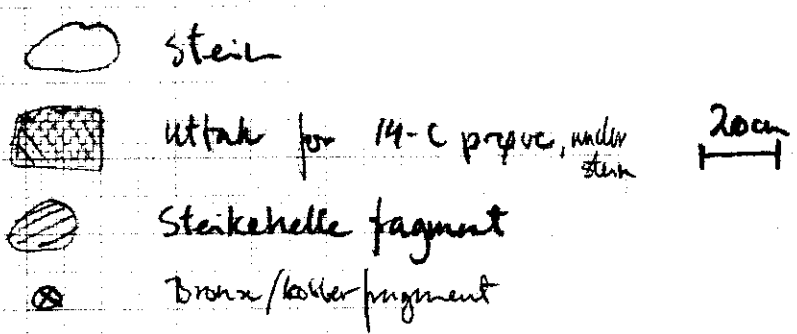 Stein
Uttak for 14-C prøve, under stein
20cm
Steikehelle fragment
Bronse/kobber fragment